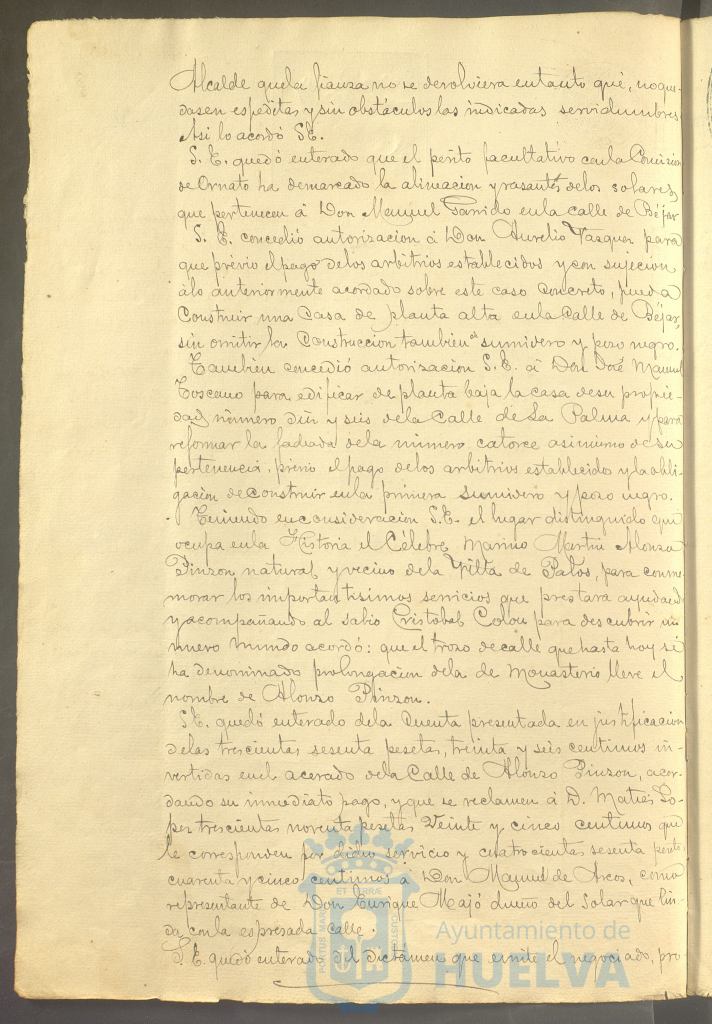 Alcalde que la fianza no se devolviera entanto que, no que-
dasen espeditas y sin obstáculos las indicadas servidumbres.
Asi lo acordó S.E.
S. E. quedó enterado que el perito facultativo con la Comision
de Ornato ha demarcado la alineacion y rasantes delos solares,
que pertenecen á Don Manuel Garrido en la calle de Béjar
S. E. concedió autorizacion á Don Aurelio Vazquez para
que prévio el pago delos arbitrios establecidos y con sujecion
álo anteriormente acordado sobre este caso concreto, pueda
Construir una casa de planta alta en la Calle de Béjar,
sin omitir la Construccion tambien de sumidero y pozo negro.
Tambien concedió autorizacion S.E. á Don José Manuel
Toscano para edificar de planta baja la casa desu propie-
dad número diez y seis dela Calle de La Palma y para
reformar la fachada dela número catorce asimismo de su
pertenencia, previo el pago delos arbitrios establecidos y la obli-
gacion de construir en la primera sumidero y pozo negro.
Teniendo en consideracion S.E. el lugar distinguido que
ocupa en la Historia el Célebre Marino Martin Alonzo
Pinzon natural y vecino dela Villa de Palos, para conme-
morar los importantisimos servicios que prestara ayudando
y acompañando al sabio Cristobal Colon para descubrir un
nuevo mundo acordó: que el trozo de calle que hasta hoy se
ha denominado prolongacion dela de Monasterio lleve el
nombre de Alonzo Pinzon.
S.E. quedó enterado dela Cuenta presentada en justificacion
delas trescientas sesenta pesetas, treinta y seis centimos in-
vertidas en el acerado dela Calle de Alonzo Pinzon, acor-
dando su inmediato pago, y que se reclamen á D. Matias Lo-
pez trescientas noventa pesetas Veinte y cinco centimos que
le corresponden por dicho servicio y cuatrocientas sesenta pesetas
cuarenta y cinco centimos á Don Manuel de Arcos, como
representante de Don Enrique Majó dueño del Solar que lin-
da con la espresada calle.
S. E. quedó enterado del dictamen que emite el negociado, pro-
PORTUS MARIS
ET TERRÆ
CUSTODIA
Ayuntamiento de
HUELVA